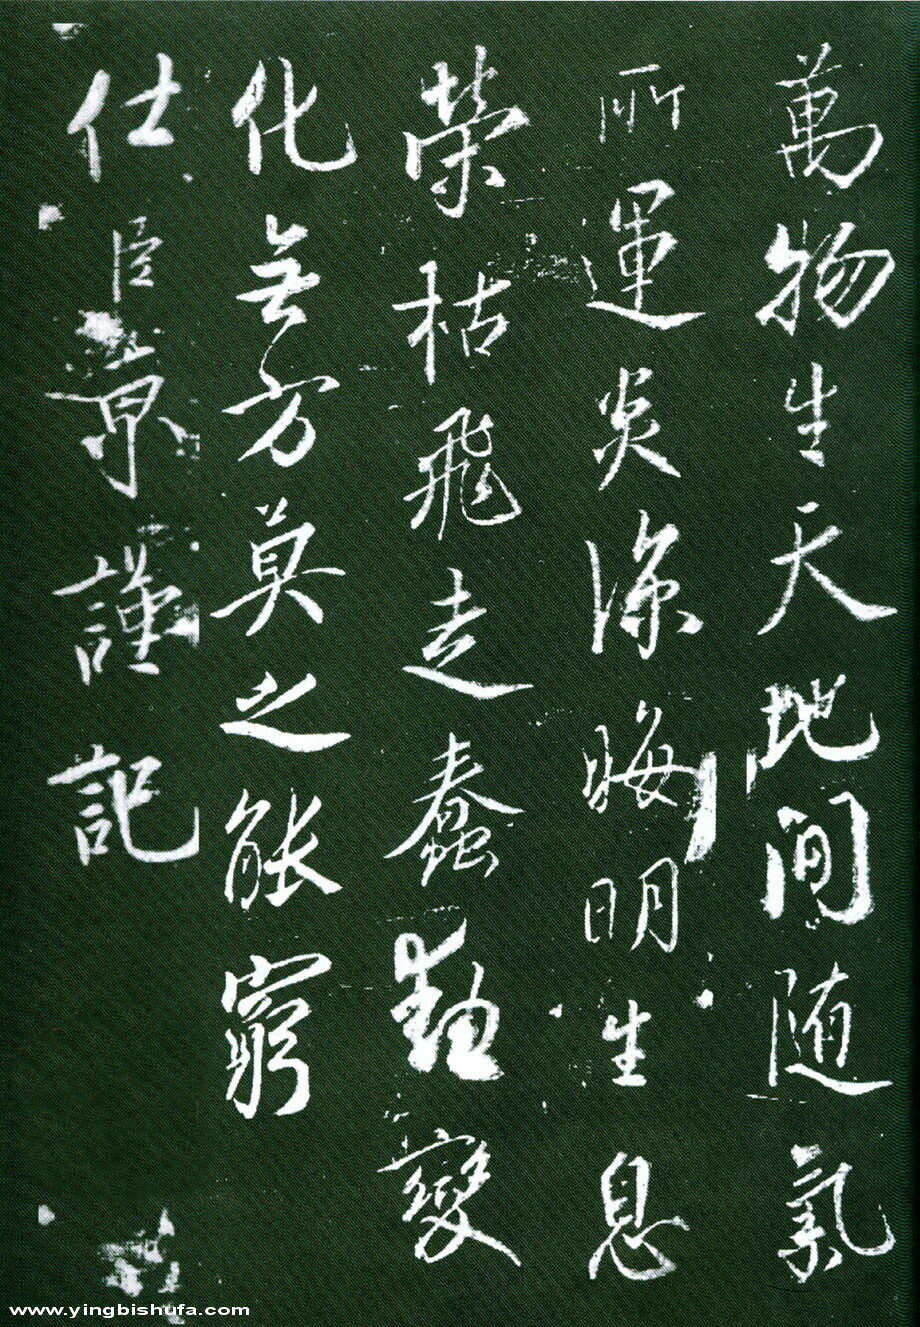 萬物生天地間随氣
所運炎涼晦明生息
榮枯飛走蠢動變
化无方莫之能窮
仕臣京謹記
www.yingbishufa.com